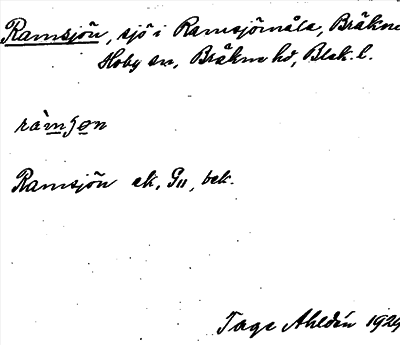 Ramsjön, sjö i Ramsjömåla, Bräkne
Hoby sn, Bräkne hd, Blek. l.
ràmʃøn
Ramsjön ek, G11, bek.
Tage Ahldén 1929